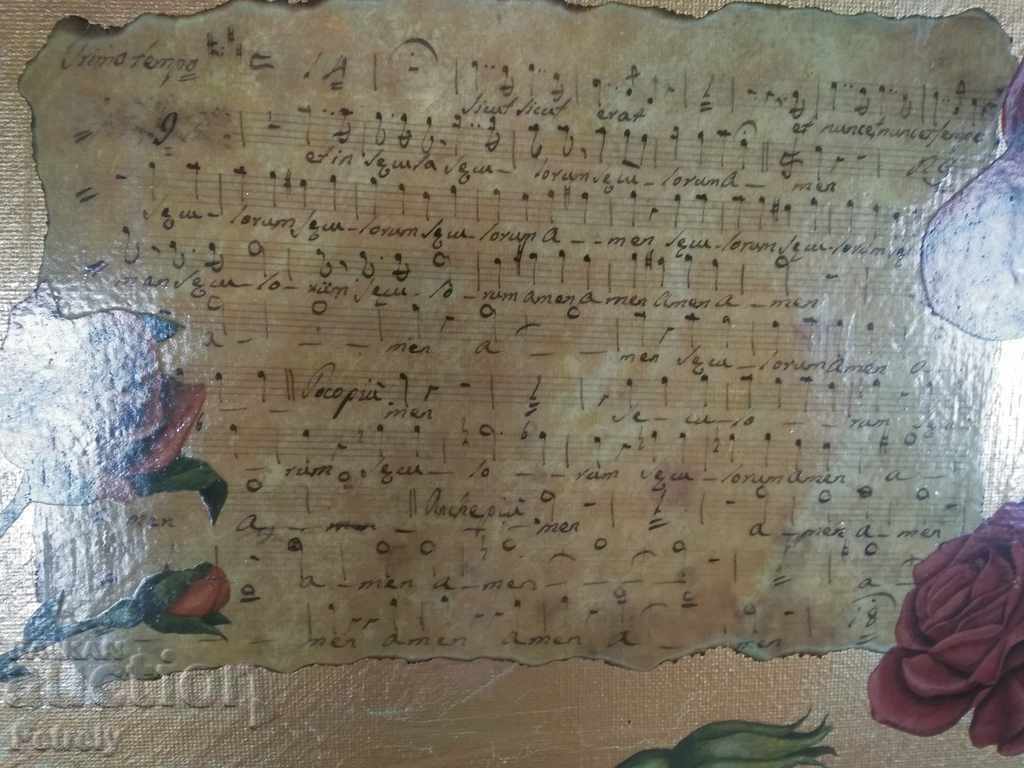 Primo tempo
sicut sicut erat et nunc et nunc et
et in sequla sequ - lorum sequ - lorum A - men
sequ - lorum sequ - lorum sequ - lorum A - - men sequ - lorum sequ - lorum
men sequ - lo - rum sequ - lo - rum amen amen amen A - men
a - - - - men a - - - men sequ - lorum amen a
men se - cu - lo - - rum sequ
- rum sequ - lo - - rum sequ - lorum amen a -
men a - - men - - - men a - men a - men
a - men a - men - - - - a -
- - - - men amen amen a - - men
auction
Petraly